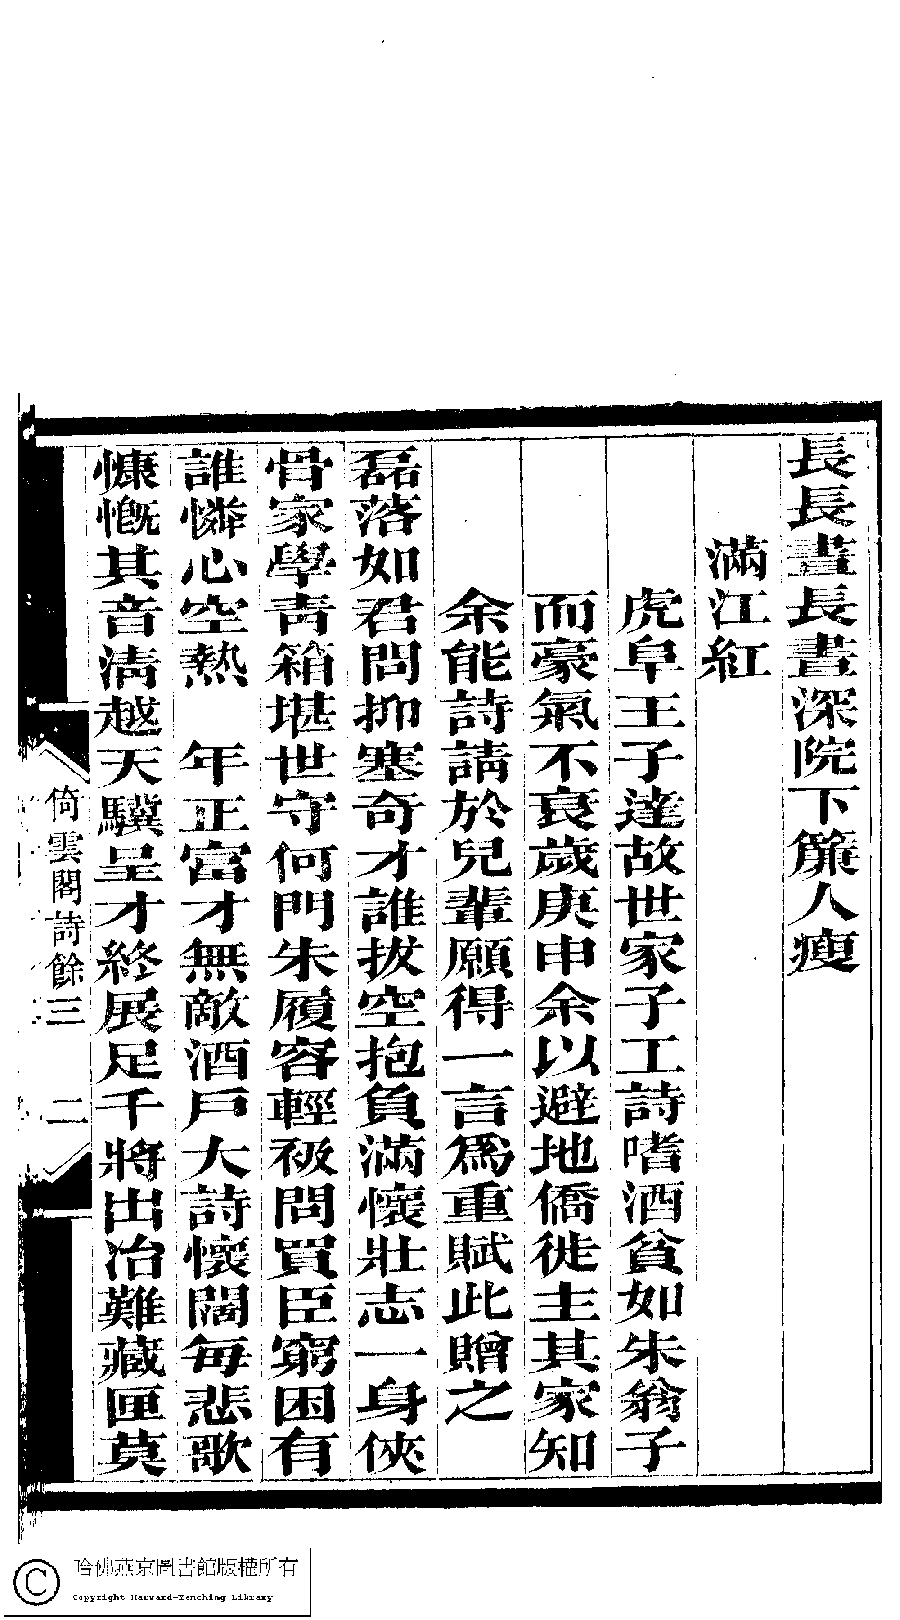 長長晝長晝深院下簾人瘦
滿江紅
虎阜王子達故世家子工詩嗜酒貧如朱翁子
而豪氣不衰歲庚申余以避地僑徙主其家知
余能詩請於兒輩願得一言爲重賦此贈之
磊落如君問抑塞奇才誰拔空抱負滿懷壯志一身俠
骨家學青箱堪世守何門朱履容輕衱問買臣窮困有
誰憐心空熱　年正富才無敵酒戶大詩懷闊每悲歌
慷慨其音淸越天驥呈才終展足千將出冶難藏匣莫
倚雲閣詩餘三　二
哈佛燕京圖書館版權所有
Copyright Harvard-Yenching Library